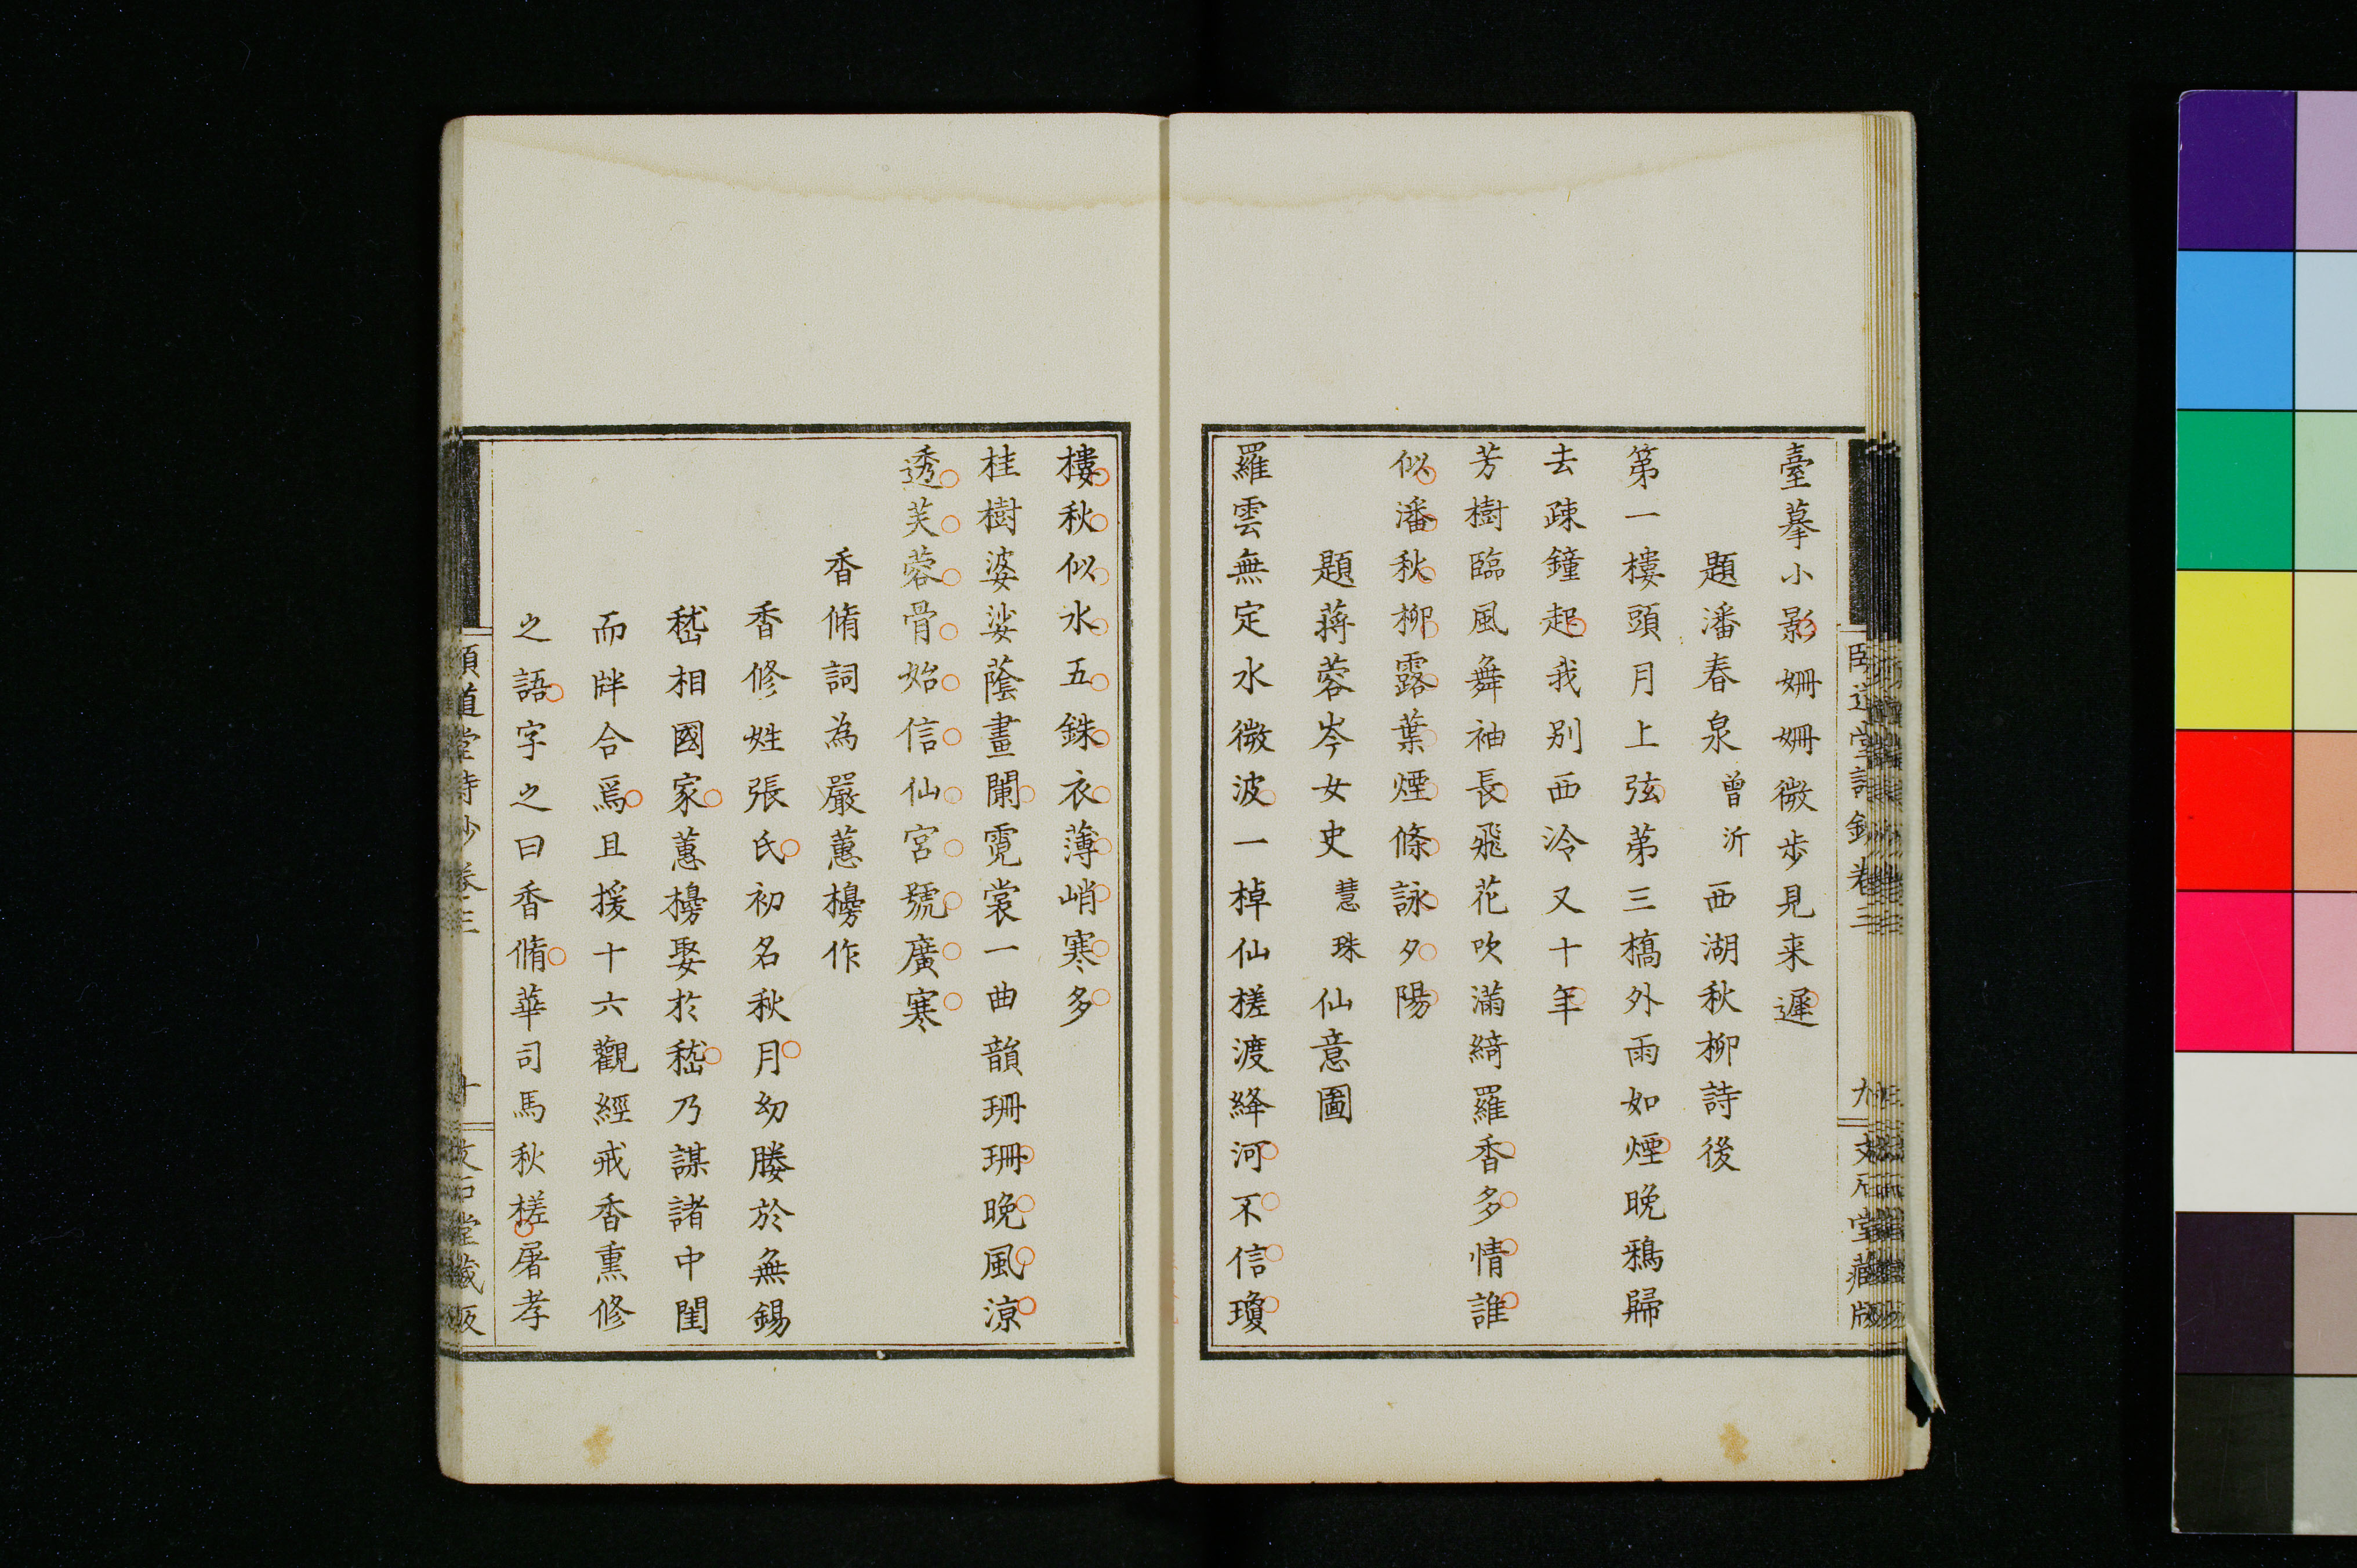 臺摹小影姍姍微步見来遲
題潘春泉曾沂西湖秋柳詩後
第一樓頭月上弦第三橋外雨如煙晚鴉歸
去疎鐘起我別西泠又十年
芳樹臨風舞袖長飛花吹滿綺羅香多情誰
似潘秋柳露葉煙條詠夕陽
題蔣蓉岑女史慧珠仙意圖
羅雲無定水微波一棹仙槎渡絳河不信瓊
樓秋似水五銖衣薄峭寒多
桂樹婆娑蔭畫闌霓裳一曲韻珊珊晚風涼
透芙蓉骨始信仙宮號廣寒
香脩詞為嚴蕙櫋作
香修姓張氏初名秋月幼媵於無錫
嵇相國家蕙櫋娶於嵇乃謀諸中閨
而牉合焉且援十六觀經戒香熏修
之語字之曰香脩華司馬秋槎屠孝
頤道堂詩鈔卷三
十
文石堂藏版
堂詩鈔卷三
九
文石堂藏版